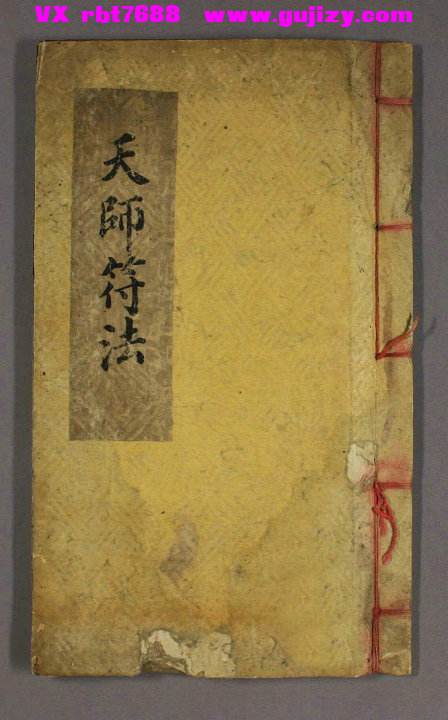 VX rbt7688 www.gujizy.com
天師符法